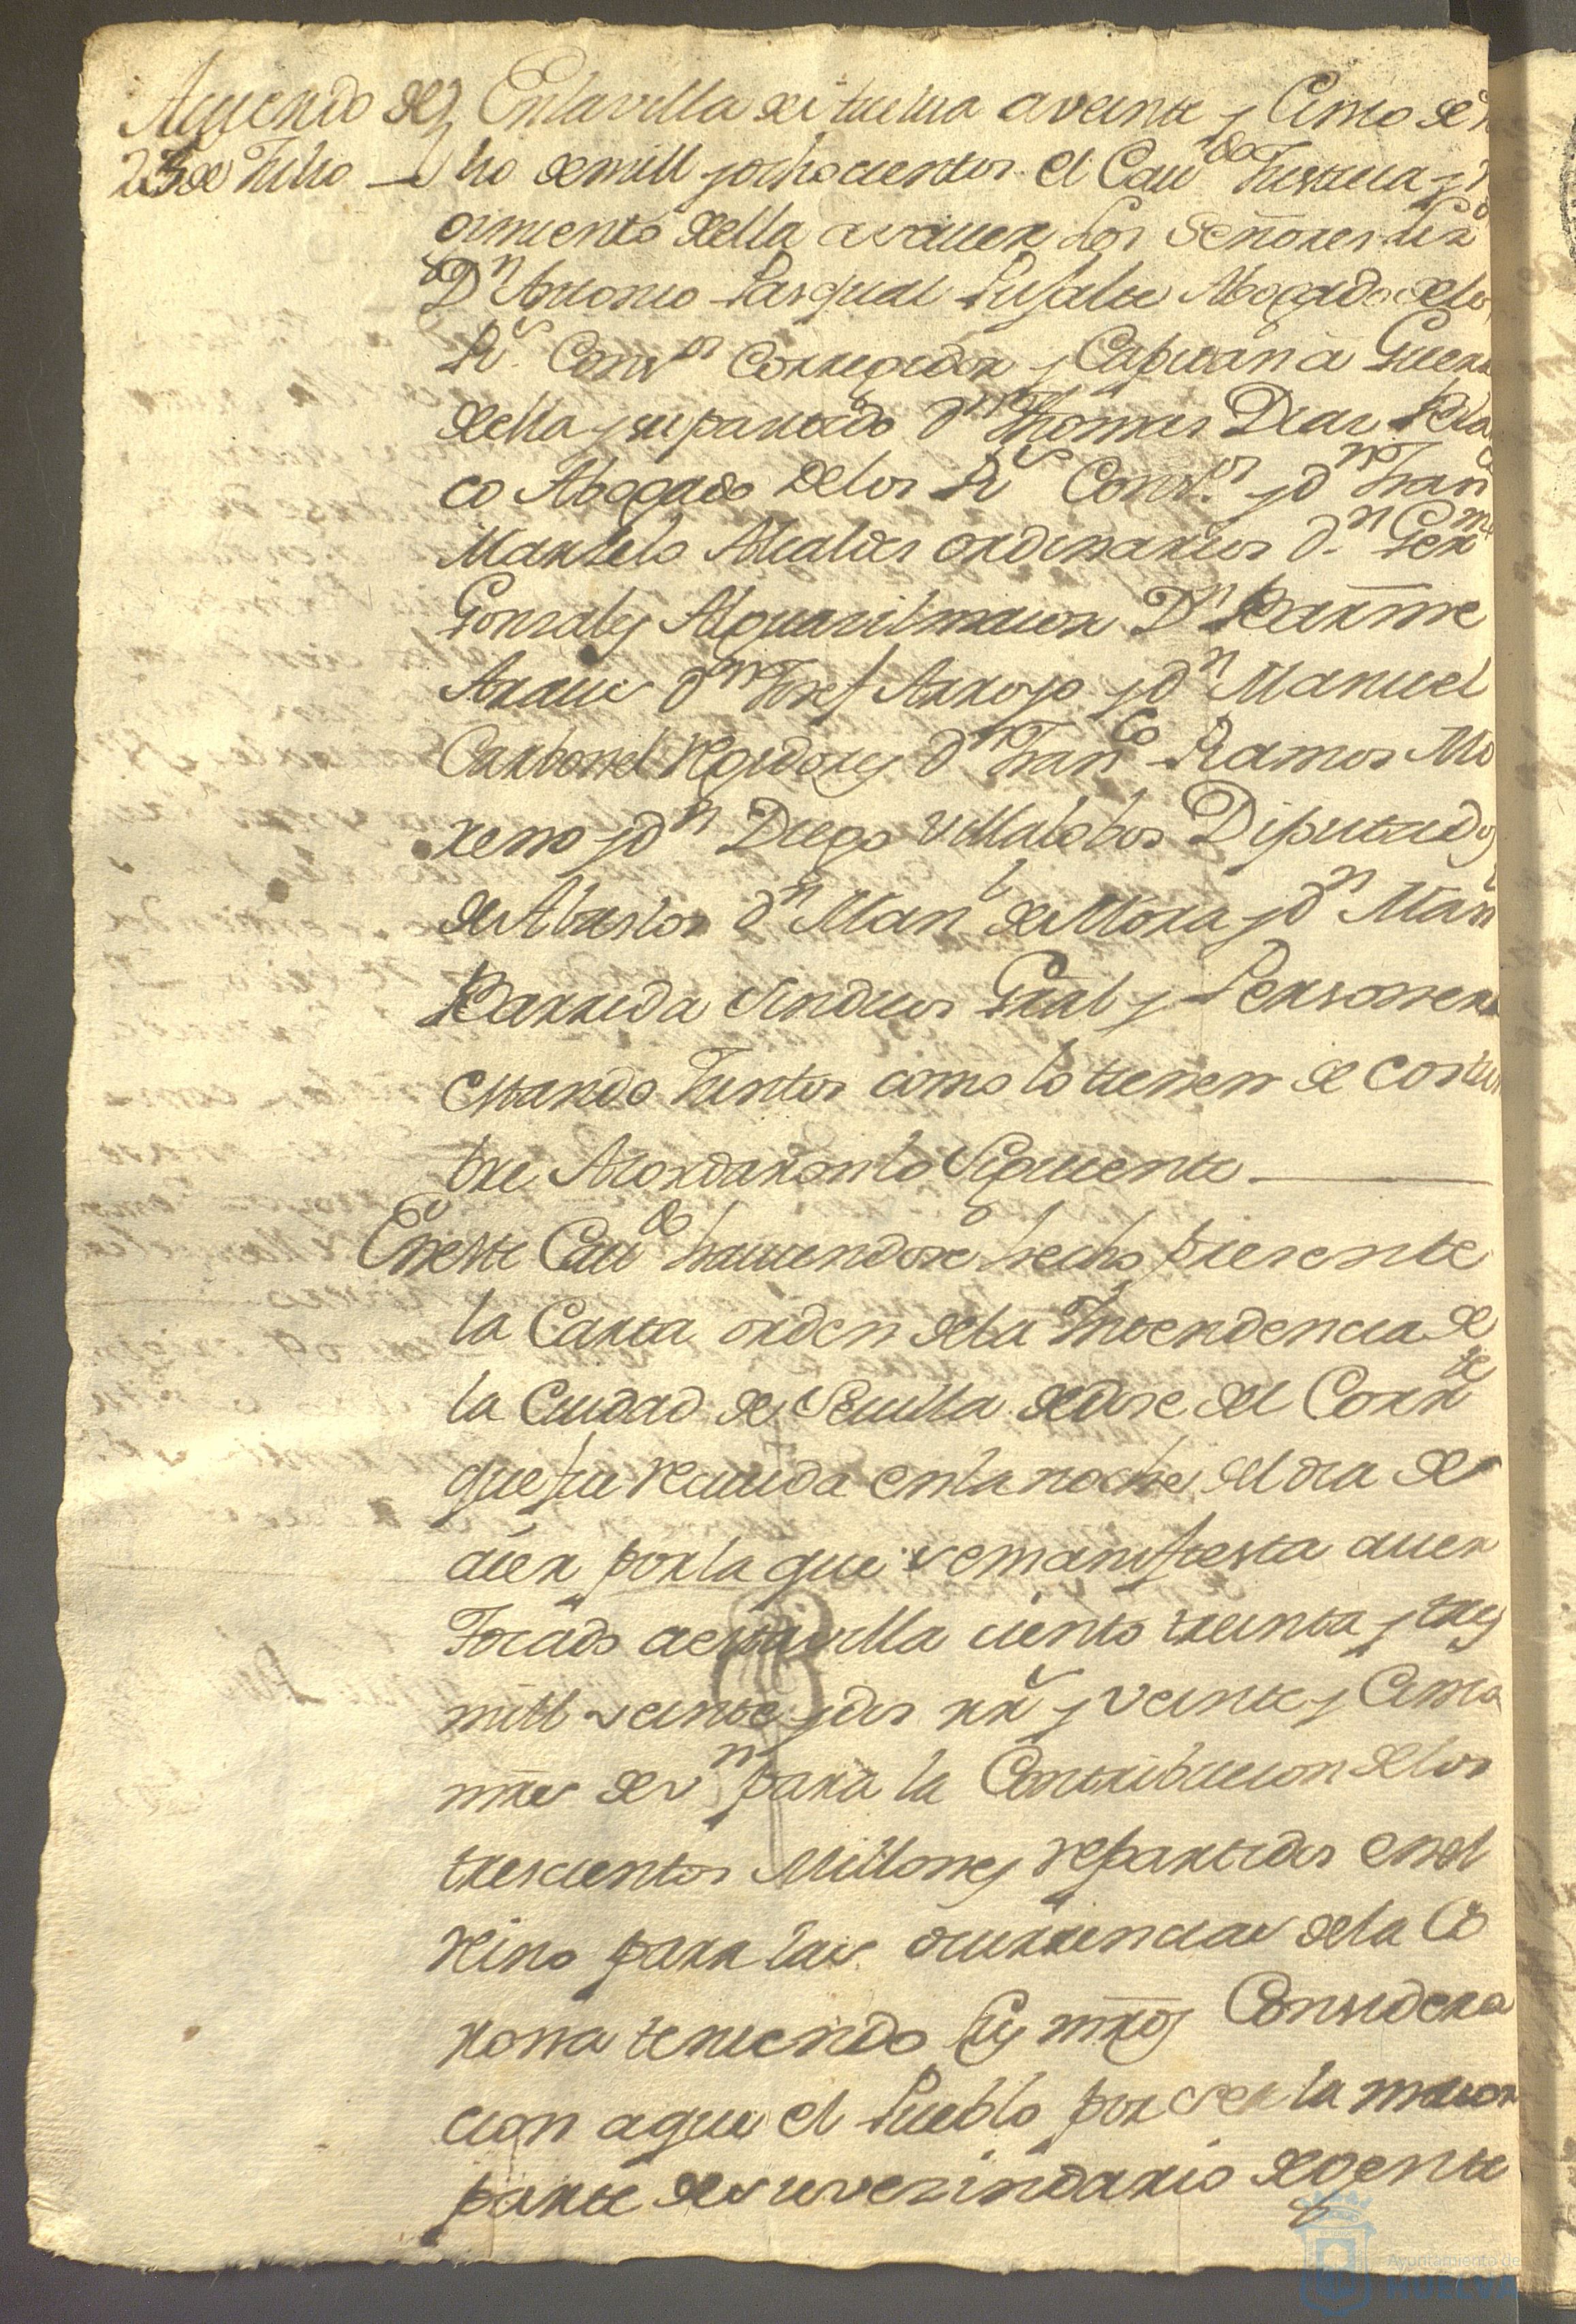 Acuerdo de
25 de Julio
En la villa de Huelva a veinte y Cinco de
lio de mill y ochocientos el Cavdo Justicia y
gimiento della a saver Los Señores Lizdo
Dn Antonio Pasqual Pusalte Abogado de los
Rs Consos Corregidor y Capitan a Guerra
della y su partido dn Thomas Diaz
co Abogado de los Rs Consos y dn Franco
Alcaldes ordinarios dn Germo
Gonzales Alguacil maior Dn Barme
Araus dn Josef Arroyo y dn Manuel
Carbonel Regidores dn Franco Ramos Mo
reno y dn Diego Villalobos Diputados
de Abastos dn Manl de Mora y dn Manl
Barrida Sindicos Gral y Personero
estando Juntos como lo tienen de costum
bre Acordaron lo Siguiente
En este Cavdo haviendose hecho presente
la Carta orden de la Intendencia de
la Ciudad de Sevilla de dose del Corrte
que fue recivida en la noche del dia de
aier por la que se manifiesta aver
Tocado a esta villa ciento treinta y tres
mill veinte y dos rrs y veinte y Cinco
mrs de vn para la Contribucion de los
trescientos Millones repartidos en el
reino para las ocurrencias de la Co
rona teniendo sus mrds Considera
cion a que el Pueblo por ser la maior
parte de su vezindario de gente
Ayuntamiento de
HUELVA